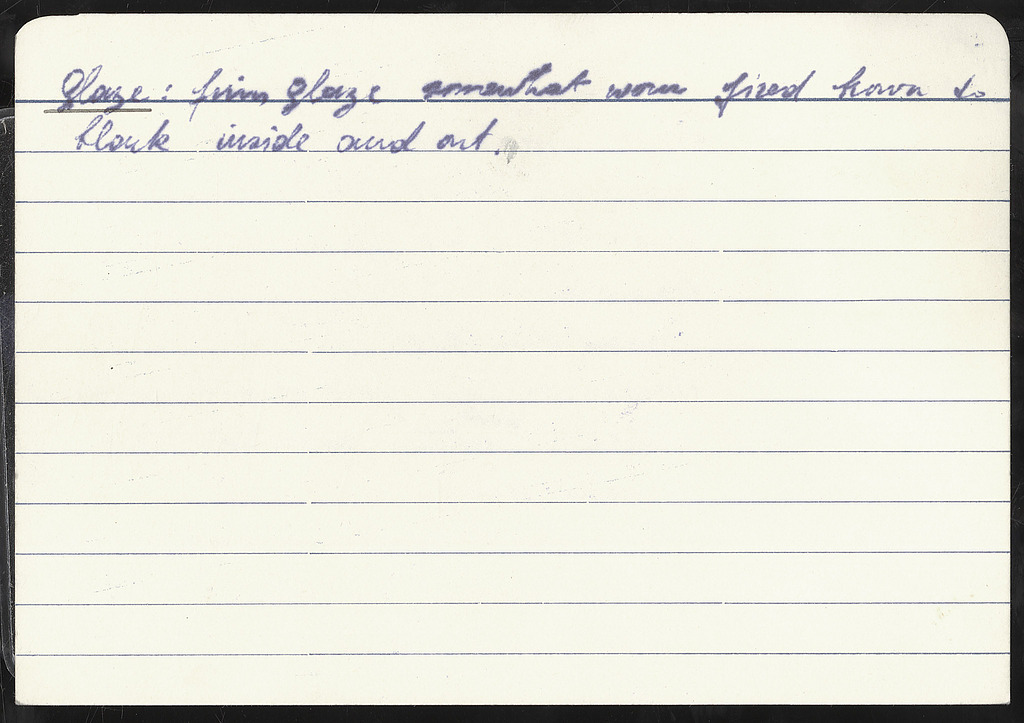 Glaze: firm glaze somewhat worn fired brown to
black inside and out.